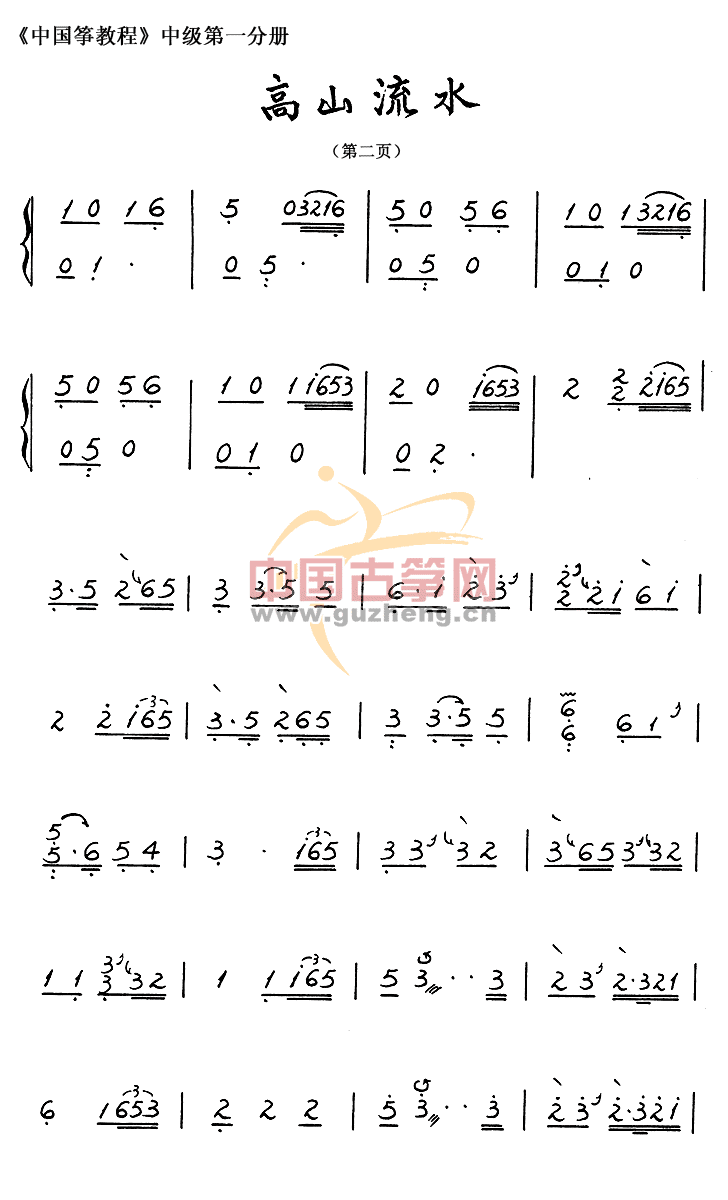 《中国筝教程》中级第一分册
高山流水
（第二页）
1 0 1 6 | 5 03216 | 5 0 5 6 | 1 0 1 3216 |
0 1 · | 0 5 · | 0 5 0 | 0 1 0
5 0 5 6 | 1 0 1 1653 | 2 0 1653 | 2 2 2 2165 |
0 5 0 | 0 1 0 | 0 2 ·
3·5 2 65 | 3 3·5 5 | 6·1 2 3 | 2 2 2 1 6 1 |
中国古筝网
www.guzheng.cn
2 2 1 6 5 3 | 3·5 2 6 5 | 3 3·5 5 | 6 6 6 1 |
5 5·6 5 4 | 3 · 1 6 5 3 | 3 3 3 2 | 3 65 3 32 |
1 1 3 3 32 | 1 1 1 6 5 3 | 5 3 · · 3 | 2 3 2·321 |
6 1 6 5 3 3 | 2 2 2 | 5 3 · · 3 | 2 3 2·321 |